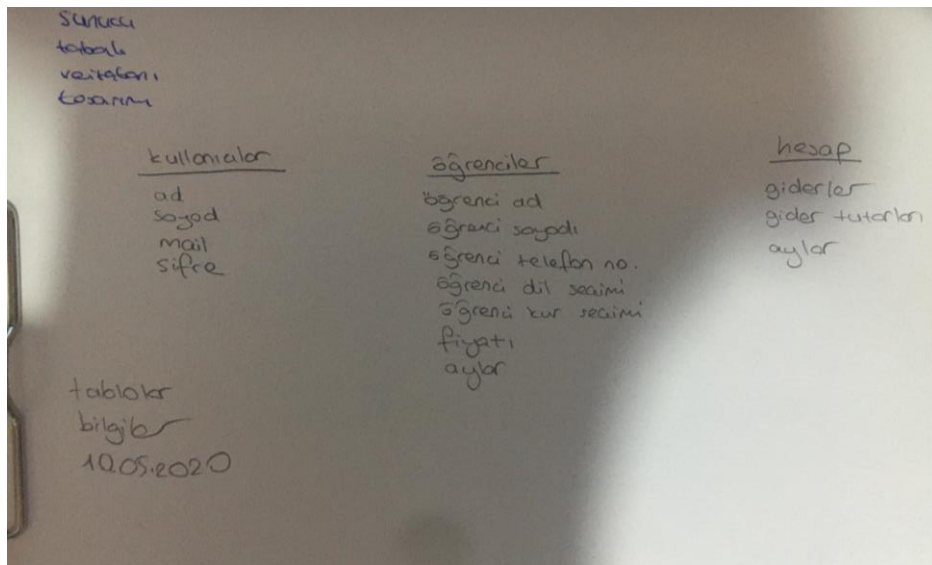 sunucu
veritabanı
tasarım
kullanıcılar
ad
soyad
mail
sifre
öğrenciler
öğrenci ad
öğrenci soyadı
öğrenci telefon no.
öğrenci dil seçimi
öğrenci kur seçimi
fiyatı
aylar
hesap
giderler
gider tutarları
aylar
tablolar
bilgiler
10.05.2020